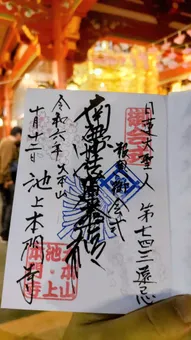 日蓮大聖人 第七四三遠忌
御会式
南無妙法蓮華経
御会式
令和六年 大本山
十月十二日 池上本門寺
大本山
池上
本門寺